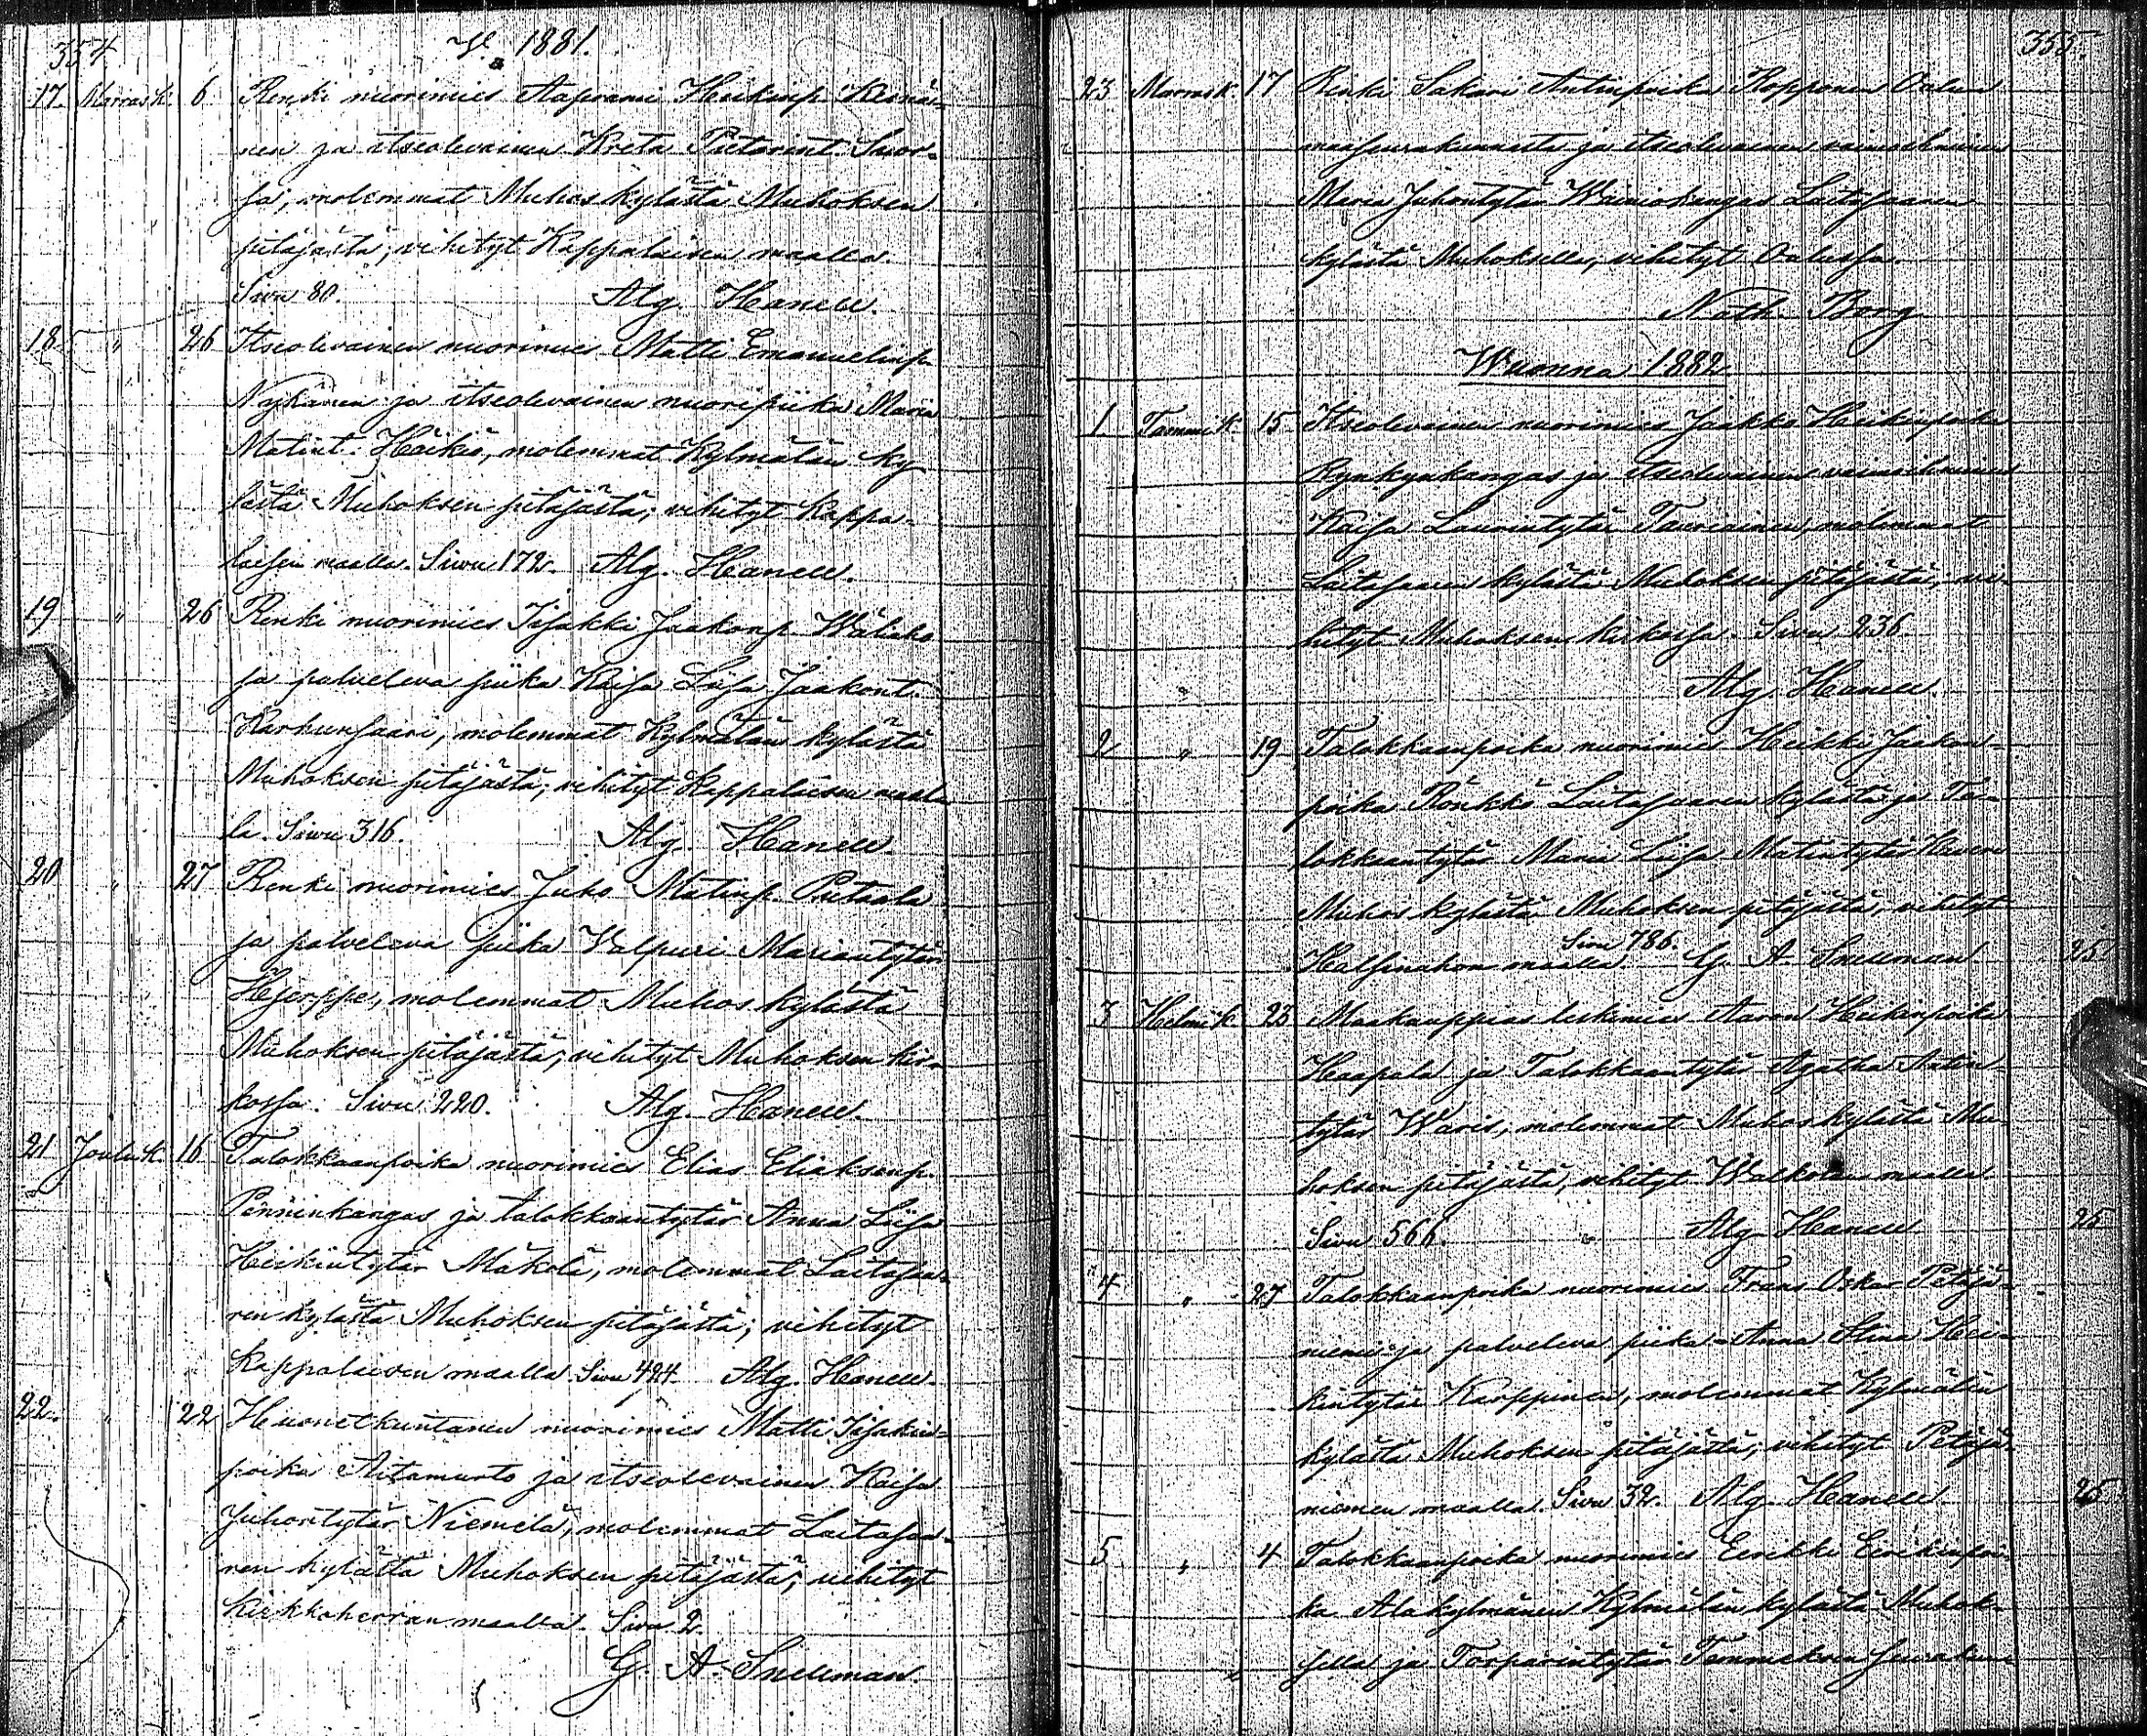 354
V. 1881.
17. Marrask. 6 Renki nuorimies Aaprami Heikinp. Keinä-
nen ja itseolevainen Kreta Pietarint. Suor-
sa, molemmat Muhos kylästä Muhoksen
pitäjästä; vihityt Kappalaisen maalla
Sivu 80. Alg. Hanell.
18. „ 26 Itseolevainen nuorimies Matti Emanuelinp.
Nykänen ja itseolevainen nuoripiika Maria
Matint. Häikiö, molemmat Kylmälän ky-
lästä Muhoksen pitäjästä; vihityt Kappa-
laisen maalla. Sivu 172. Alg. Hanell.
19 „ 26 Renki nuorimies Iisakki Jaakonp. Wälaho
ja palveleva piika Kaisa Liisa Jaakont.
Karhunsaari, molemmat Kylmälän kylästä
Muhoksen pitäjästä; vihityt Kappalaisen maalla
la. Sivu 316. Alg. Hanell.
20 „ 27 Renki nuorimies Juho Matinp. Pietaala
ja palveleva piika Valpuri Mariantytär
Hjerppe, molemmat Muhos kylästä
Muhoksen pitäjästä; vihityt Muhoksen kir-
kossa. Sivu 220. Alg. Hanell.
21 Jouluk. 16 Talokkaanpoika nuorimies Elias Eliaksenp.
Penninkangas ja talokkaantytär Anna Liisa
Heikintytär Mäkelä, molemmat Laitasaa-
ren kylästä Muhoksen pitäjästä; vihityt
Kappalaisen maalla Sivu 424. Alg. Hanell.
22. „ 22 Huonetkuntanen nuorimies Matti Iisakin-
poika Aitamurto ja itseolevainen Kaisa
Juhontytär Niemelä, molemmat Laitasaa-
ren kylästä Muhoksen pitäjästä; vihityt
Kirkkoherran maalla. Sivu 2.
G. A. Snellman.
355.
23 Marrask. 17 Renki Sakari Antinpoika Ropponen Oulun
maaseurakunnasta ja itseolevainen vaimoihminen
Maria Juhontytär Wainiokangas Laitasaaren
kylästä Muhoksella, vihityt Oulussa.
Nath. Borg
Wuonna 1882
1 Tammik. 15 Itseolevainen nuorimies Jaakko Heikinpoika
Kynkynkangas ja itseolevainen vaimoihminen
Kaisa Laurintytär Tauriainen, molemmat
Laitasaaren kylästä Muhoksen pitäjästä, vi-
hityt Muhoksen kirkossa. Sivu 236.
Alg. Hanell.
2 „ 19 Talokkaanpoika nuorimies Heikki Jaakon-
poika Rönkkö Laitasaaren kylästä ja Ta-
lokkaantytär Maria Liisa Matintytär
Muhos kylästä Muhoksen pitäjästä, vihityt
Sivu 786.
maalla. G. A. Snellman 25
3 Helmik. 23 Maakauppias leskimies Aaron Heikinpoika
Haapala ja Talokkaantytär Agatha Antin-
tytär Waris, molemmat Muhos kylästä Mu-
hoksen pitäjästä, vihityt Walkolan maalla.
Sivu 566. Alg Hanell 25
4 „ 27 Talokkaanpoika nuorimies Frans Oskar Petäjä-
niemi ja palveleva piika Anna Stina Hei-
kintytär Karppinen, molemmat Kylmälän
kylästä Muhoksen pitäjästä; vihityt Petäjä-
niemen maalla. Sivu 32. Alg. Hanell 25
5 „ 4 Talokkaanpoika nuorimies Eerikki Eerikinpoi-
ka Alakylmänen Kylmälän kylästä Muhok-
sella ja Torparintytär Temmeksen seurakun-